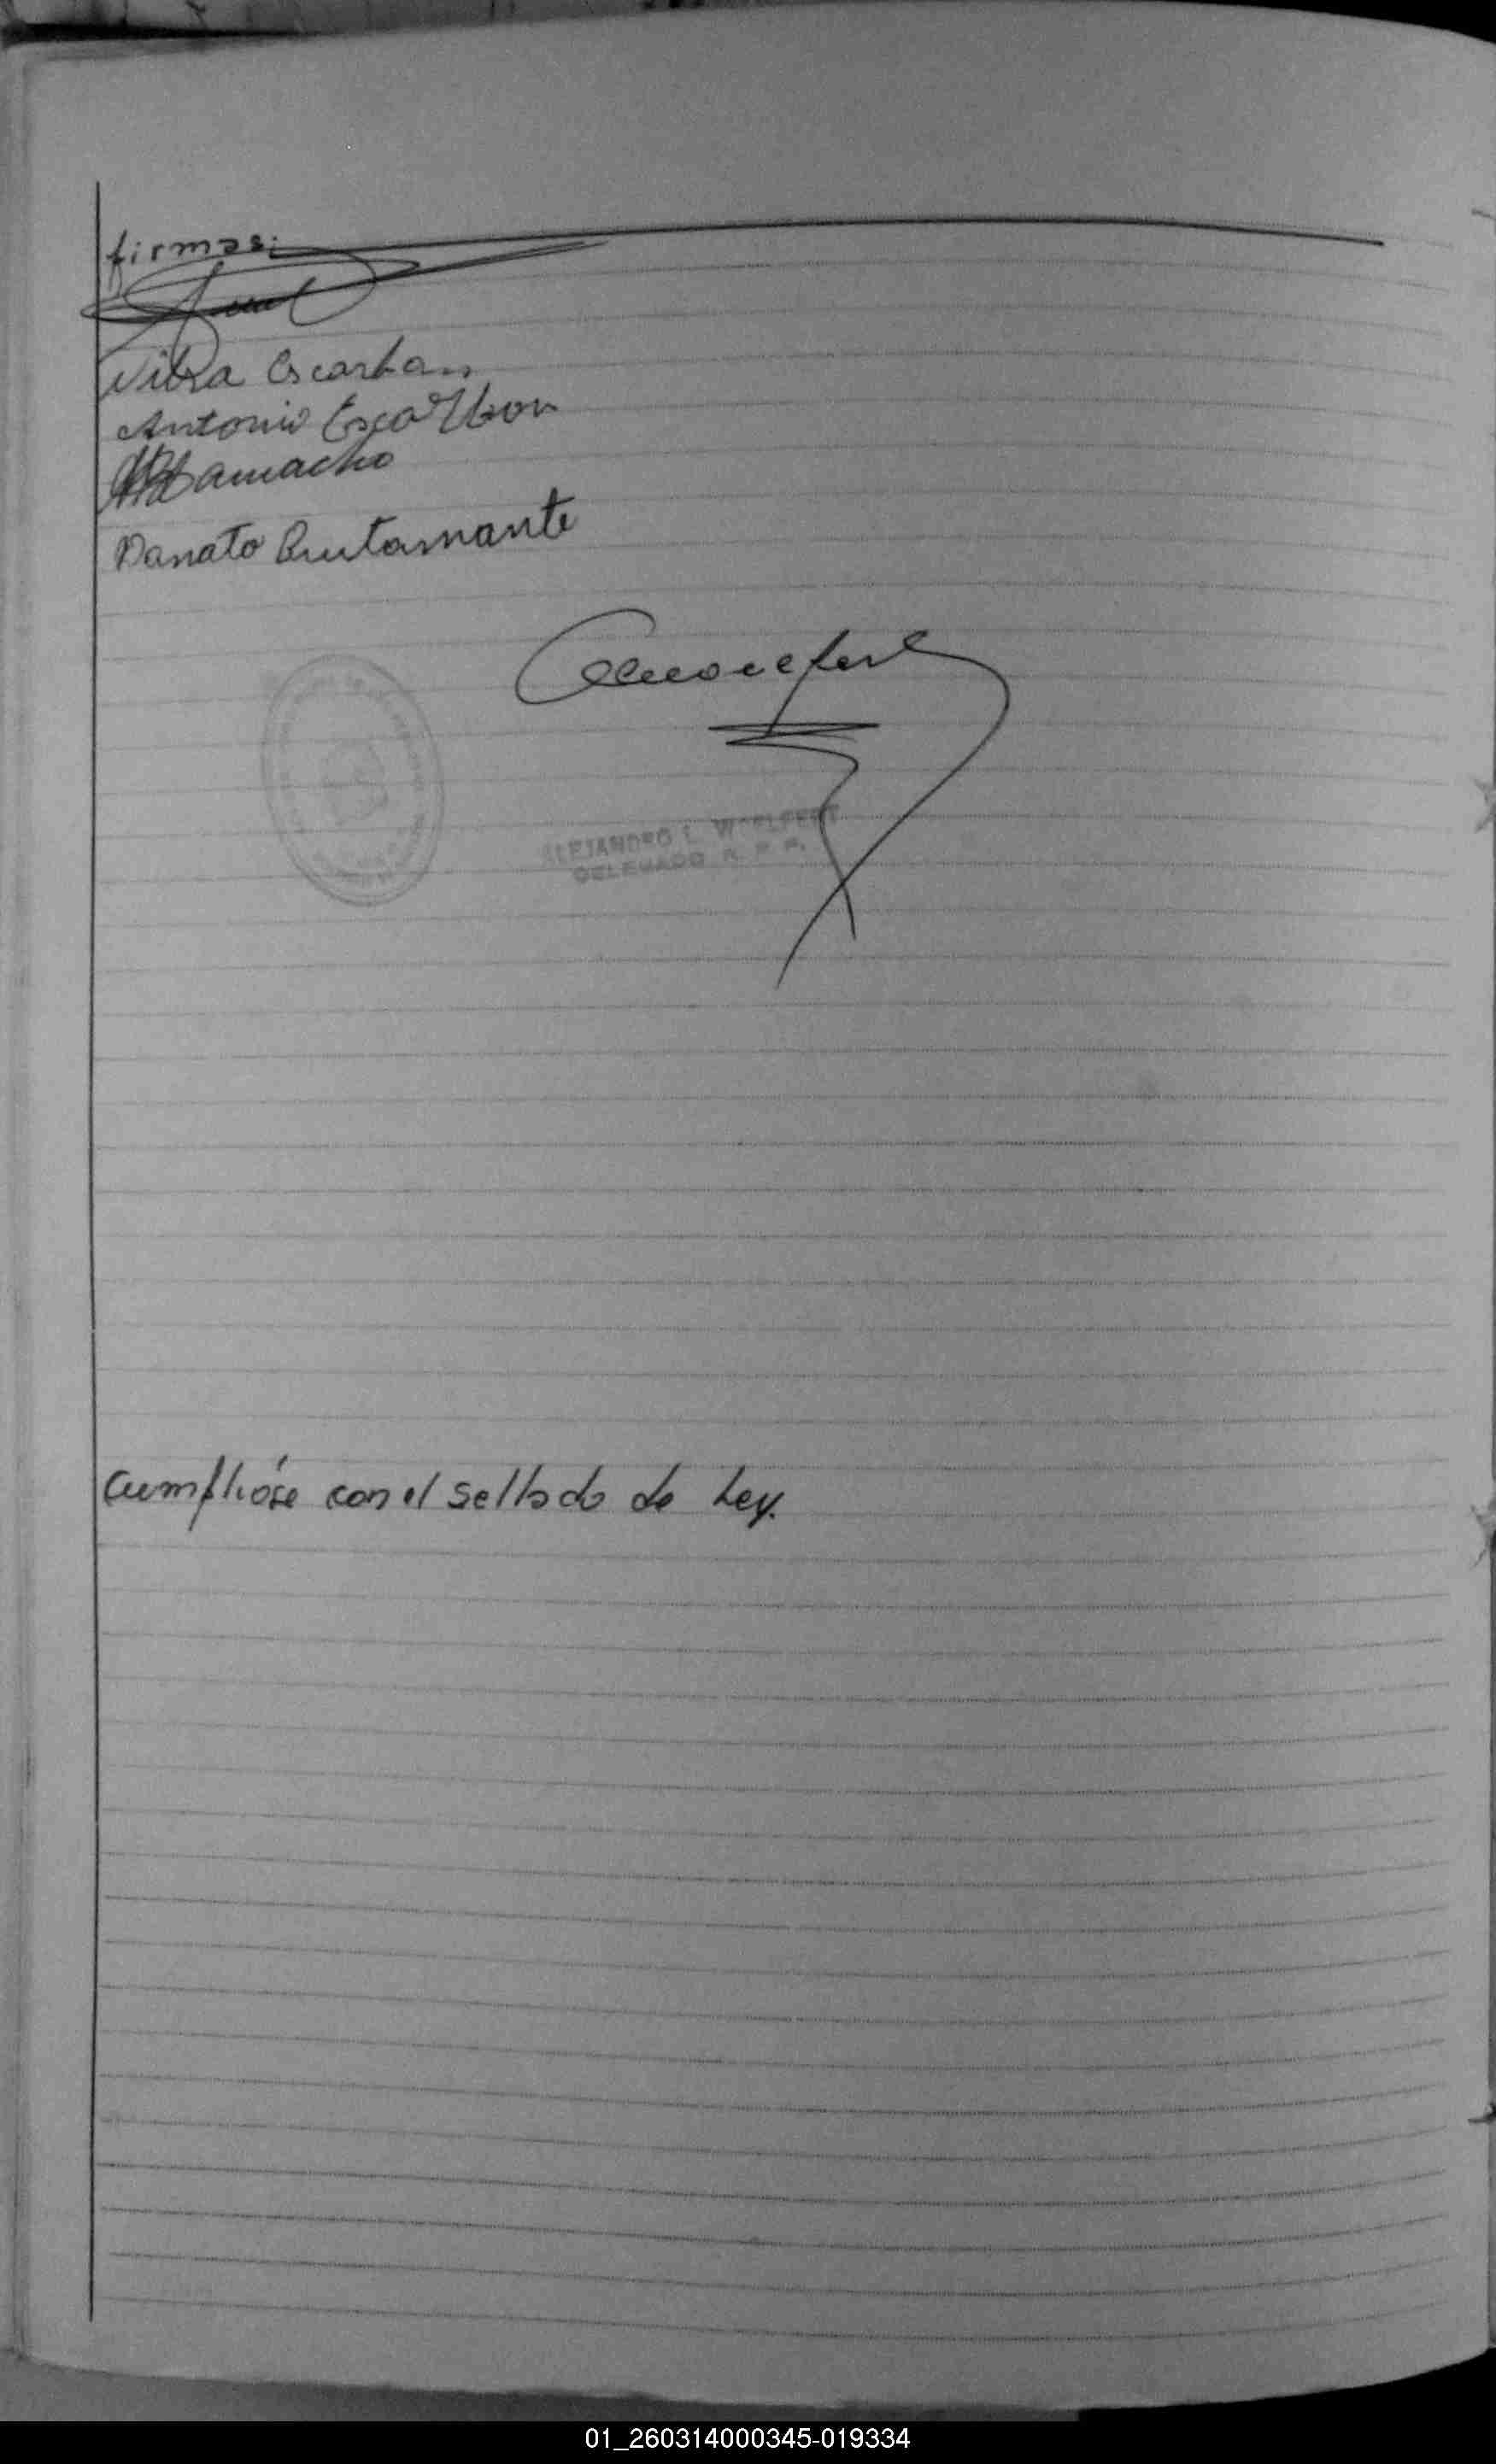 firmas:
Escarbon
Antonio Escarbon
Camacho
Donato Bustamante
ALEJANDRO L. WOELFERT
DELEGADO R. P. P.
Cumplióse con el sellado de Ley.
01_260314000345-019334